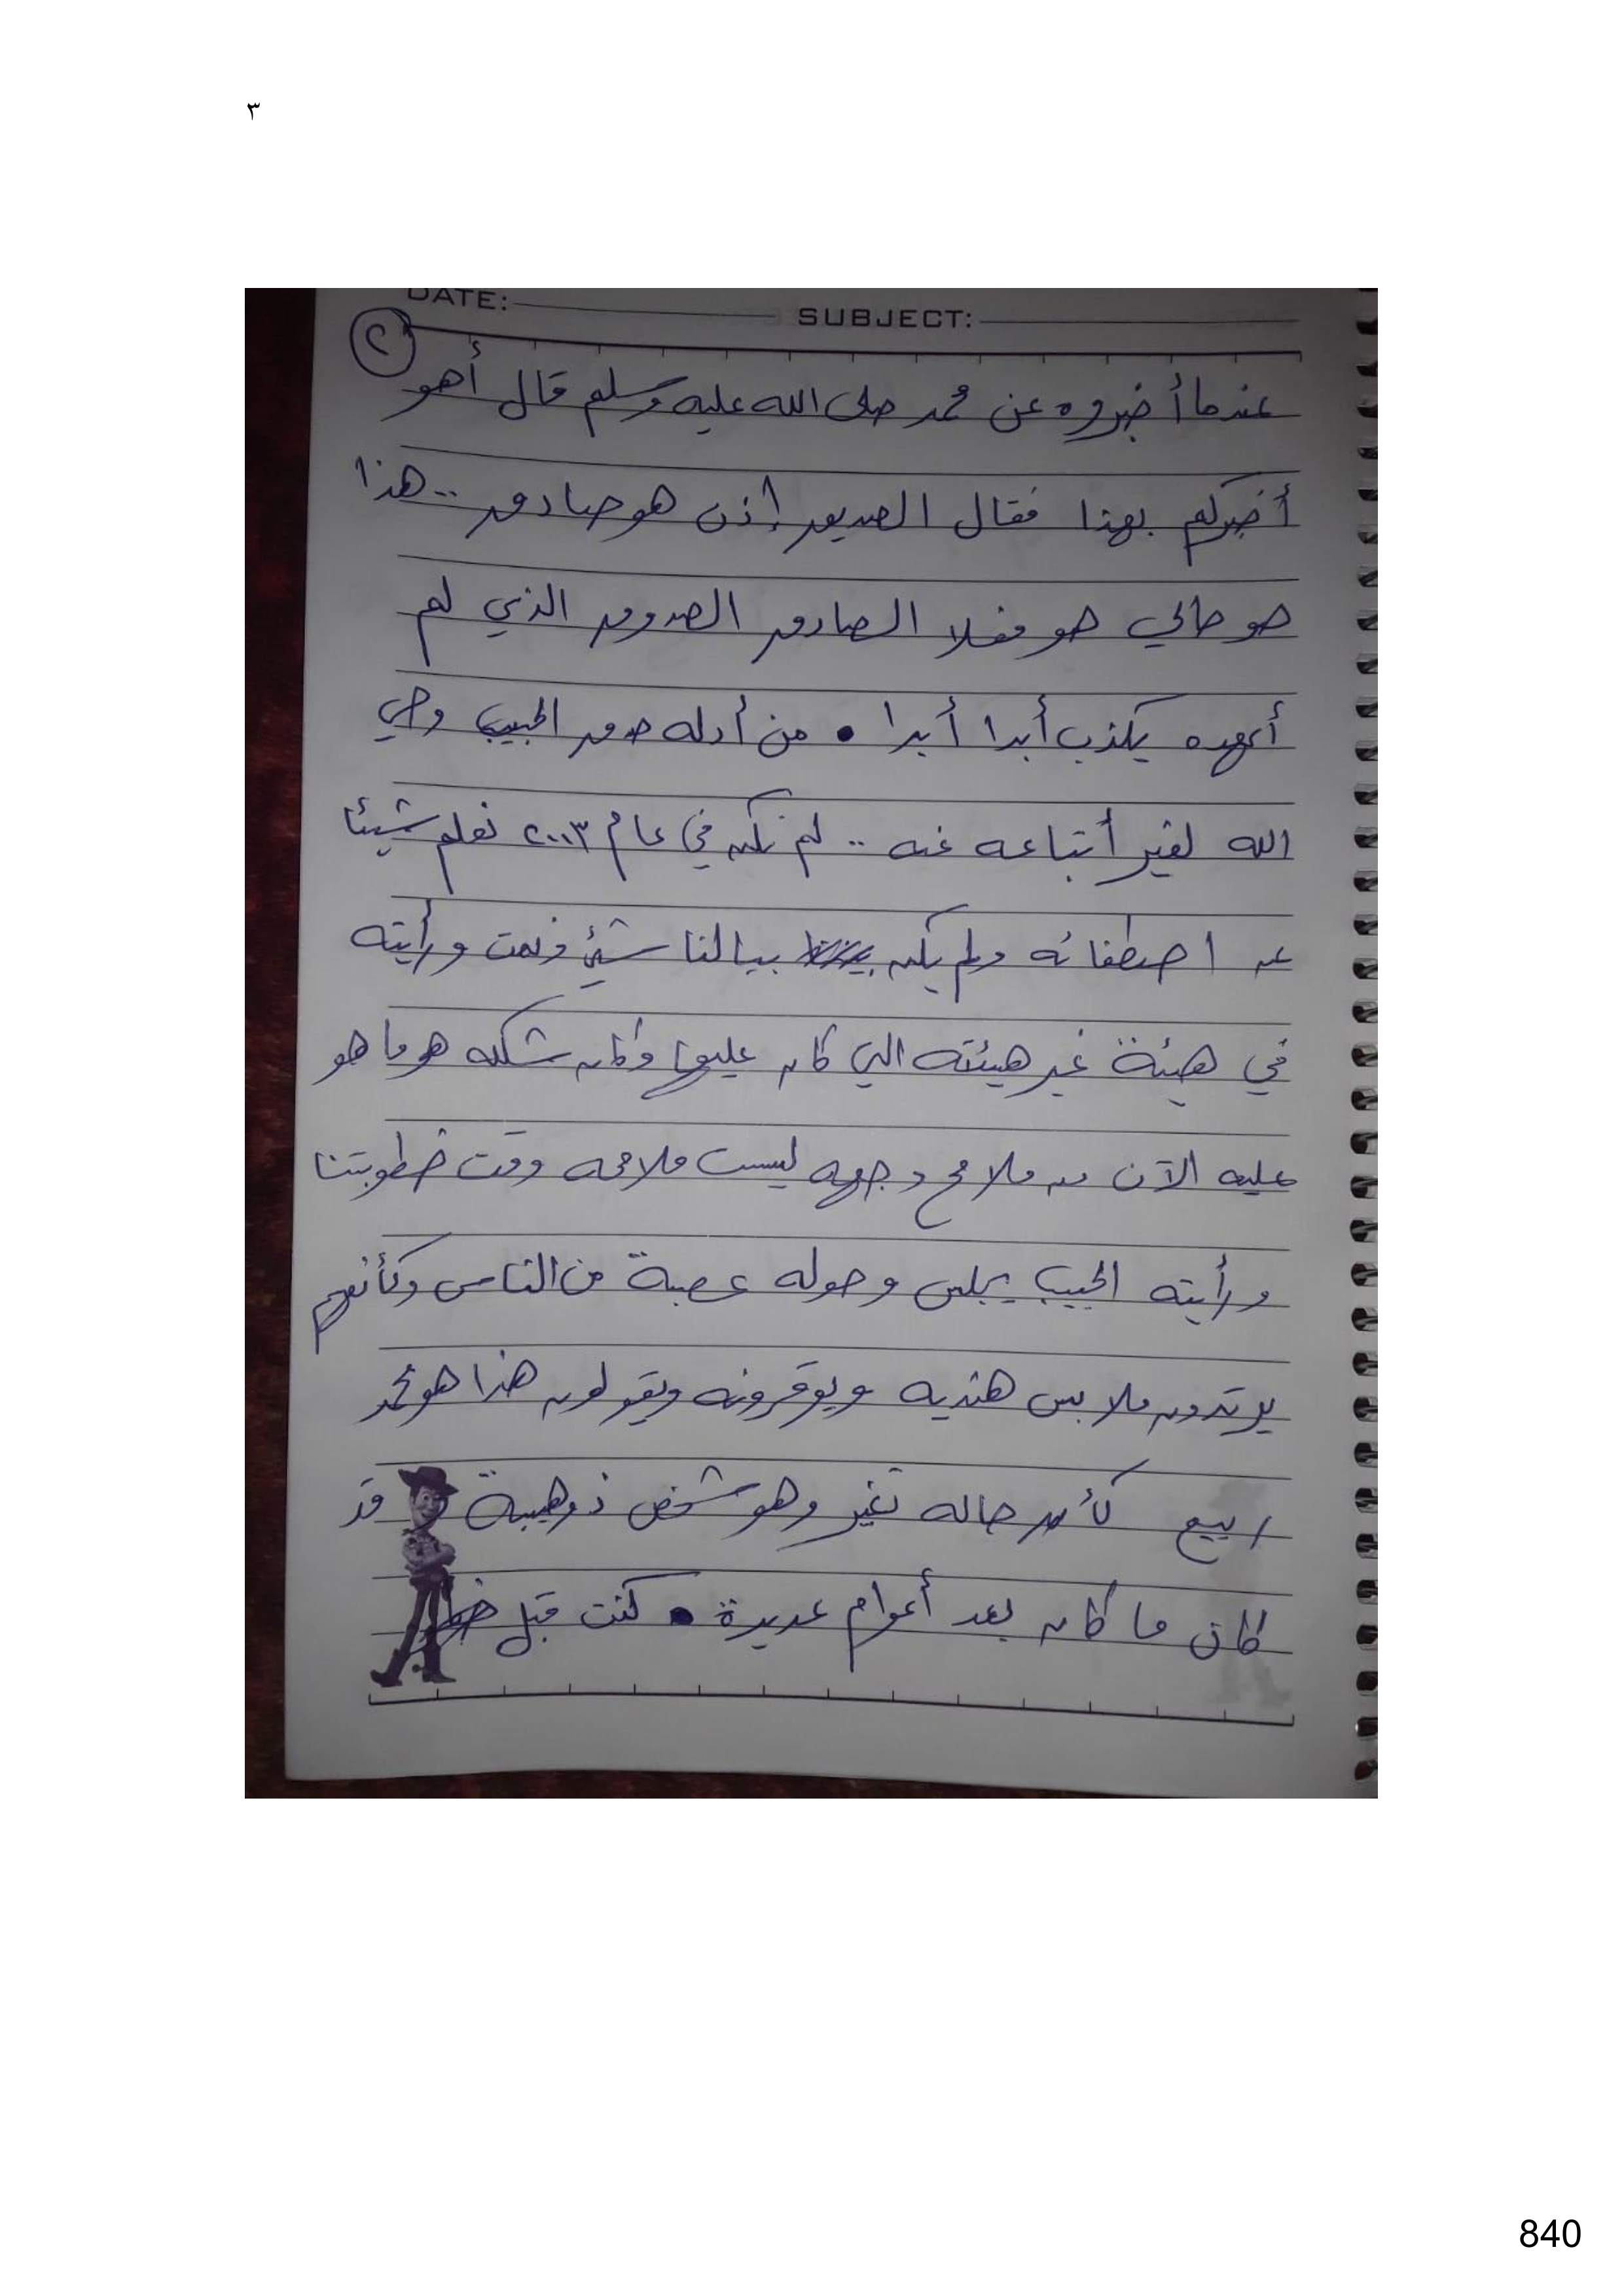 ٣
DATE: SUBJECT:
٢
عندما أخبروه عن محمد صلى الله عليه وسلم قال أهو
أخبركم بهذا فقال الصديق إذن هو صادق .. هذا
هو حالي هو فعلا الصادق الصدوق الذي لم
أعهده يكذب أبدا أبدا • من أدله صدق الحبيب وحي
الله لغير أتباعه عنه .. لم نكن في عام ٢٠٠٣ نعلم شيئا
عن اصطفائه ولم يكن ببالنا شئ ونمت ورأيته
في هيئة غير هيئته التي كان عليها وكان شكله هو ما هو
عليه الآن من ملامح وجهه ليست ملامحه وقت خطوبتنا
ورأيته الحبيب يجلس وحوله عصبة من الناس وكأنهم
يرتدون ملابس هنديه ويوقرونه ويقولون هذا هو محمد
ربيع كأن حاله تغير وهو شخص ذو هيبة وقد
كان ما كان بعد أعوام عديدة • كنت قبل
840